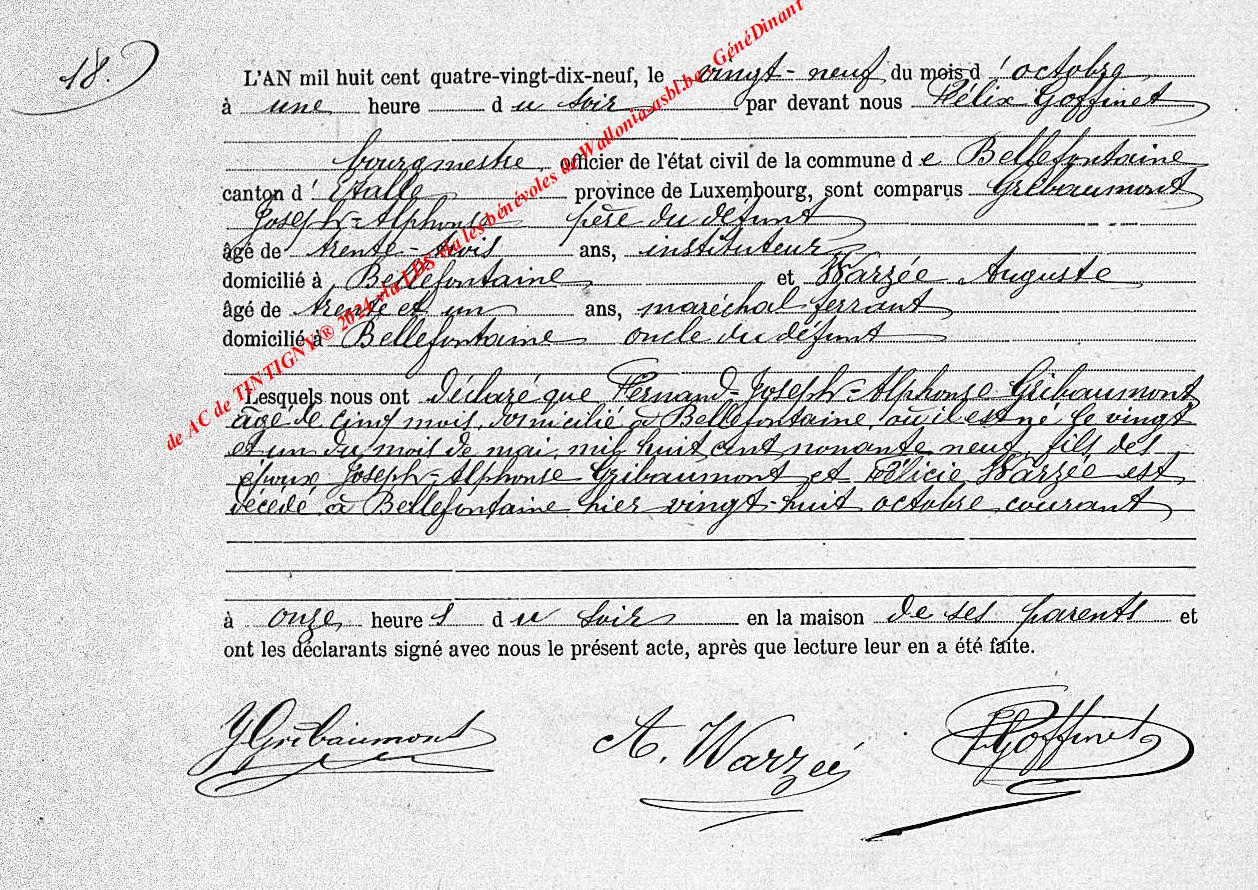 18.
L'AN mil huit cent quatre-vingt-dix-neuf, le vingt-neuf du mois d'octobre
à une heure du soir par devant nous Félix Goffinet
bourgmestre, officier de l'état civil de la commune de Bellefontaine
canton d'Etalle province de Luxembourg, sont comparus Gribaumont
Joseph-Alphonse père du défunt
âgé de trente-trois ans, instituteur
domicilié à Bellefontaine et Warzée Auguste
âgé de trente et un ans, maréchal ferrant
domicilié à Bellefontaine oncle du défunt
Lesquels nous ont déclaré que Fernand-Joseph-Alphonse Gribaumont
âgé de cinq mois, domicilié à Bellefontaine, où il est né le vingt
et un du mois de mai, mil huit cent nonante neuf, fils des
époux Joseph-Alphonse Gribaumont et Félicie Warzée est
décédé à Bellefontaine hier vingt-huit octobre courant
à onze heures du soir en la maison de ses parents et
ont les déclarants signé avec nous le présent acte, après que lecture leur en a été faite.
JGribaumont A. Warzée FGoffinet
de AC de TINTIGNY ® 2024 via LDS via les bénévoles de Wallonia-asbl.be - GénéDinant